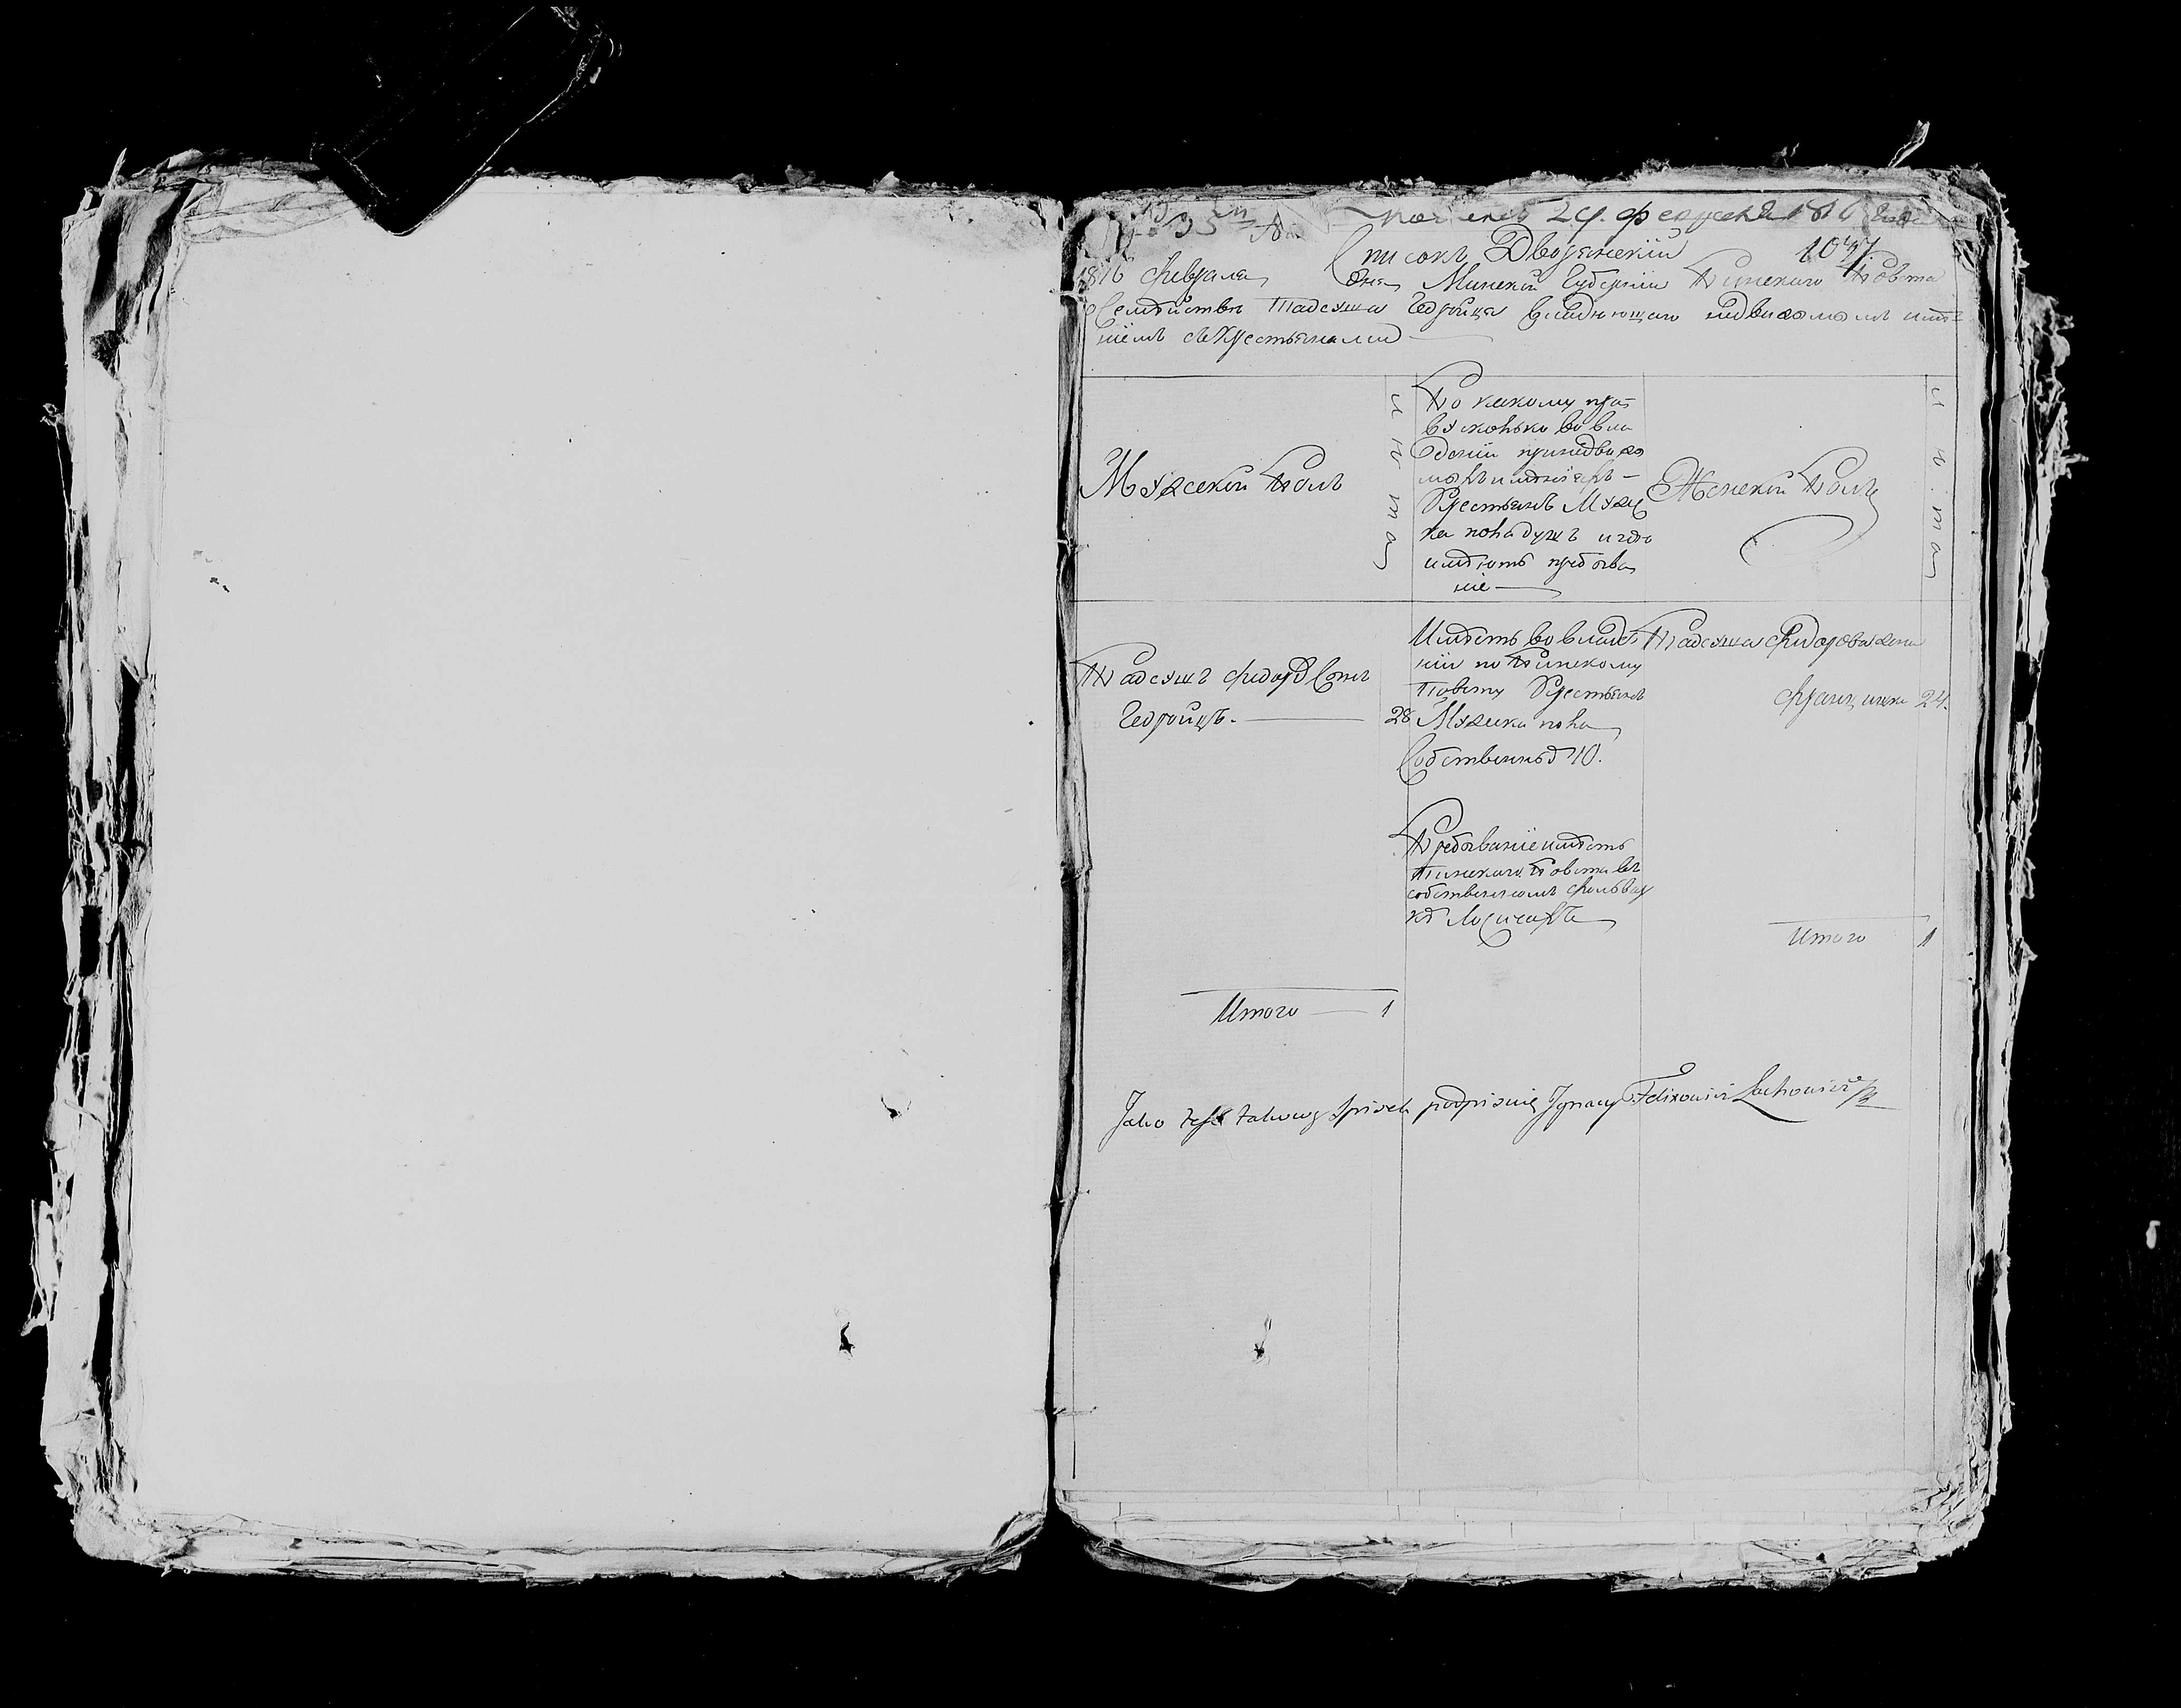 24. февраля 1816 года
Списокъ Дворянскій 1047.
1816 февраля дня Минской Губерніи Пинского Повѣта
о Семѣйствѣ Тадеуша Гедройця владѣющаго недвижомымъ имѣ
ніемъ съ Крестьянами
Мужескій Полъ
лѣта
По какому пра
ву сколько во вла
дѣніи при недвижо
момъ имѣніемъ
Крестьянъ Мужес
ка пола душъ и где
имѣютъ пребыва
ніе
Женскій Полъ
лѣта
Тадеушъ Фидор Сынъ
Гедройцъ. 28
Имѣетъ во владѣ
ніи по Пинскому
Повѣту Крестьянъ
Мужска пола
Собственныхъ 10.
Пребываніе имѣетъ
Пинского Повѣта въ
собственномъ фольвар
кѣ
Тадеуша Фидорова жена
Францишка 24.
Итого 1
Итого 1
Jako też takowy Spisek podpisuię Ignacy Felixowicz Lachowicz